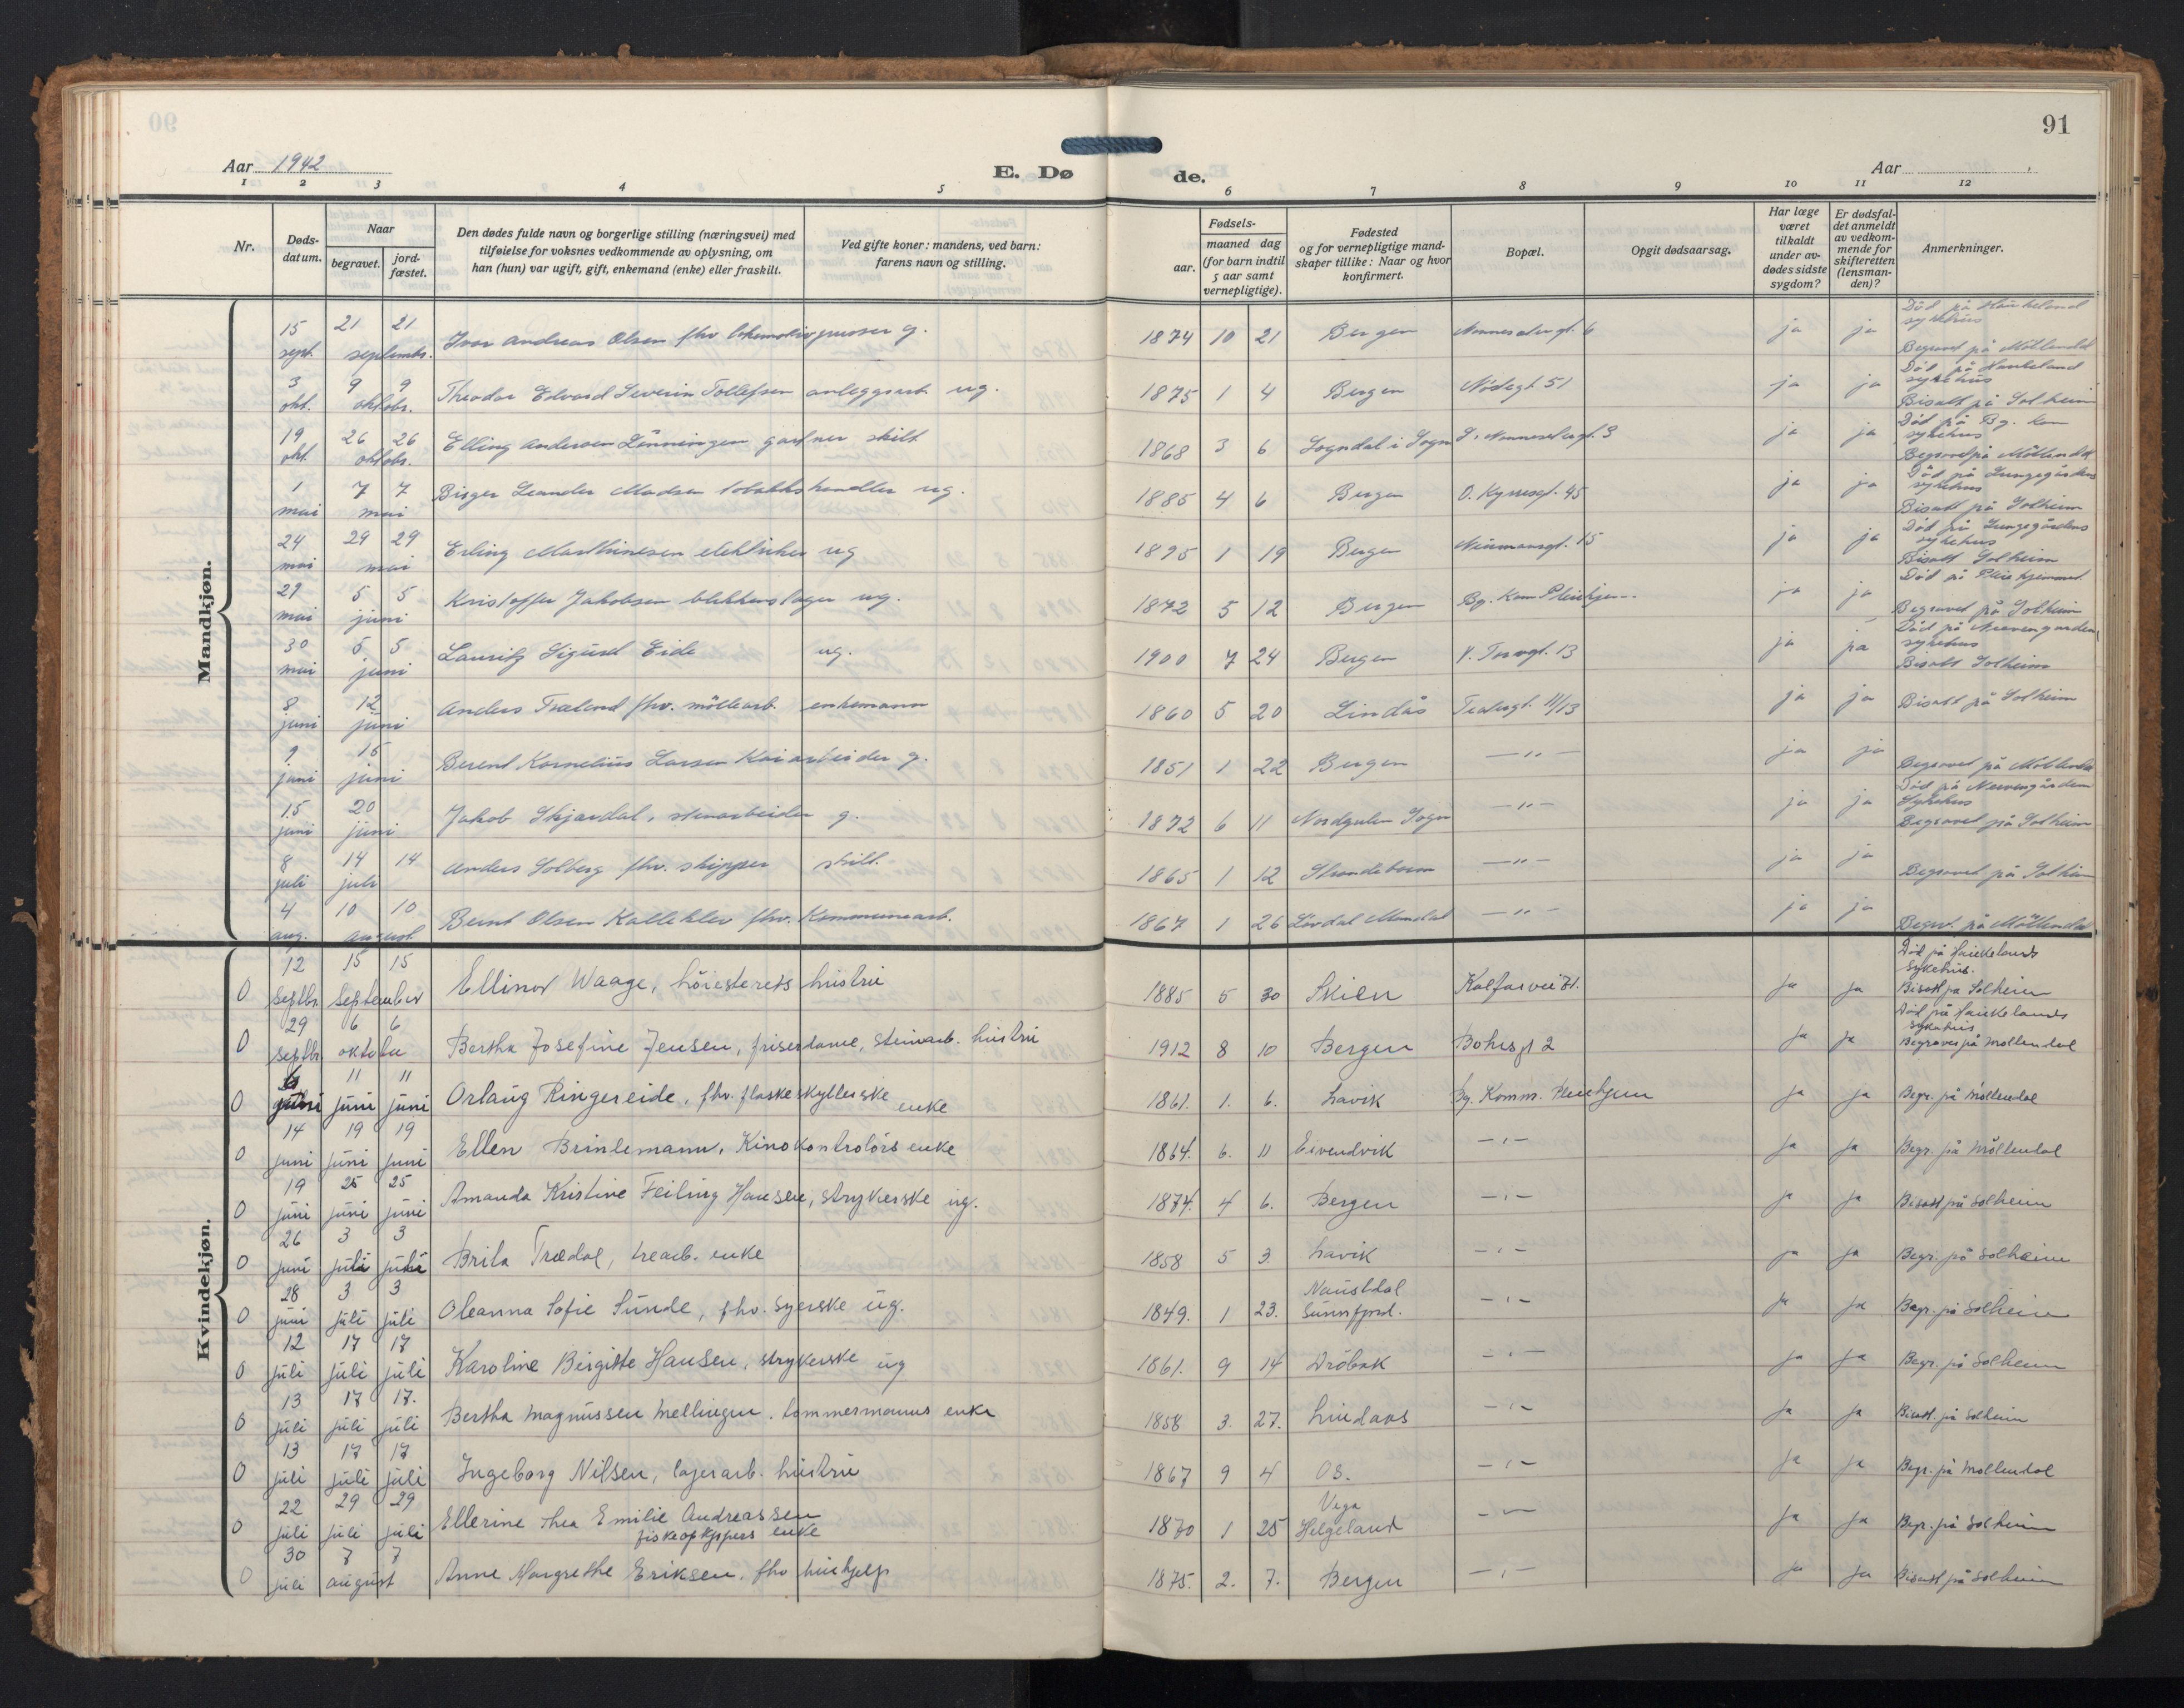 91
Aar 1942
E. Døde.
Aar
1 2 3 4 5 6 7 8 9 10 11 12
Nr.
Døds-datum.
Naar
begravet.
jord-fæstet.
Den dødes fulde navn og borgerlige stilling (næringsvei) med
tilføielse for voksnes vedkommende av oplysning, om
han (hun) var ugift, gift, enkemand (enke) eller fraskilt.
Ved gifte koner: mandens, ved barn:
farens navn og stilling.
Fødsels-
aar.
maaned dag
(for barn indtil
5 aar samt
vernepligtige).
Fødested
og for vernepligtige mand-
skaper tillike: Naar og hvor
konfirmert.
Bopæl.
Opgit dødsaarsag.
Har læge
været
tilkaldt
under av-
dødes sidste
sygdom?
Er dødsfal-
det anmeldt
av vedkom-
mende for
skifteretten
(lensman-
den)?
Anmerkninger.
Mandkjøn.
15 sept. 21 21 septembr. Ivar Andreas Olsen fhv lokomotivpusser g. 1874 10 21 Bergen 6 ja ja Död på Haukeland sykehus Begravet på Möllendal
3 okt. 9 9 oktobr. Theodor Edvard Severin Tollefsen anleggsarb. ug. 1875 1 4 Bergen 51 ja ja Död på Haukeland sykehus Bisatt på Solheim
19 okt. 26 26 oktobr. Elling Andersen Lönningen gartner skilt 1868 3 6 Sogndal i Sogn 3 ja ja Död på Bg. kom sykehus Begravet på Möllendal
1 mai 7 7 mai Birger Leander Madsen tobakkshandler ug. 1885 4 6 Bergen O. Kyrresgt. 45 ja ja Död på Lungegårdens sykehus Bisatt på Solheim
24 mai 29 29 mai Erling Marthinesen elektriker ug 1895 1 19 Bergen Neumannsgt. 15 ja ja Död på Lungegårdens sykehus Bisatt Solheim
29 mai 5 5 juni Kristoffer Jakobsen blikkenslager ug. 1872 5 12 Bergen Bg. Kom Pleiehjem ja ja Död på Pleiehjemmet. Begravet på Solheim
30 mai 5 5 juni Lauritz Sigurd Eide ug. 1900 7 24 Bergen V. Torvgt. 13 ja ja Död på Neevengarden sykehus Bisatt Solheim
8 juni 12 juni Anders Træland fhv. möllearb. enkemann 1860 5 20 Lindås Teatergt. 11/13 ja ja Bisatt på Solheim
9 juni 15 juni Berent Kornelius Larsen Kaiarbeider g. 1851 1 22 Bergen —"— ja ja Begravet på Möllendal
15 juni 20 juni Jakob Skjærdal, stenarbeider g. 1872 6 11 Nordgulen Sogn —"— ja ja Död på Neevengården Sykehus Begravet på Solheim
8 juli 14 14 juli Anders Solberg fhv. skipper skilt. 1865 1 12 Strandebarm —"— ja ja Begravet på Solheim
4 aug. 10 10 august Bernt Olsen Kalleklev fhv. Kommunearb. 1867 1 26 Mandal —"— ja ja Begrv. på Möllendal
Kvindekjøn.
0 12 septbr. 15 15 september Ellinor Waage, höiesterets hustru 1885 5 30 Skien Kalfarvei 71. ja ja Död på Haukelands Sykehus. Bisatt pa Solheim
0 29 septbr. 6 6 oktober Bertha Josefine Jensen, friserdame, steinarb. hustru 1912 8 10 Bergen Bohrsgt 2 ja ja Död på Haukelands sykehus Begraves på Mollendal
0 6 juni 11 juni 11 juni Orlaug Ringereide, fhv. flaskeskyllerske enke 1861. 1. 6. Lavik Bg. Komm. Pleiehjem ja ja Begr. på Möllendal
0 14 juni 19 juni 19 juni Ellen Brinlemann, Kinokontrolörs enke 1864. 6. 11 Eivendvik —"— ja ja Begr. på Möllendal
0 19 juni 25 juni 25 juni Amanda Kristine Feiling Hansen, strykerske ug. 1874. 4 6. Bergen —"— ja ja Bisatt på Solheim
0 26 juni 3 juli 3 juli Brita Trædal, trearb. enke 1858 5 3. Lavik —"— ja ja Begr. på Solheim
0 28 juni 3 juli 3 juli Oleanna Sofie Sunde, fhv. syerske ug. 1849. 1 23. Naustdal Sunnfjord. —"— ja ja Begr. på Solheim
0 12 juli 17 juli 17 juli Karoline Birgitte Hansen, strykerske ug 1861. 9 14 Dröbak —"— ja ja Begr. på Solheim
0 13 juli 17 juli 17. juli Bertha Magnussen Mellingen. tommermanns enke 1858 3. 27. Lindaas —"— ja ja Bisatt. på Solheim
0 13 juli 17 juli 17 juli Ingeborg Nilsen, lagerarb. hustru 1867 9 4 Os. —"— ja ja Begr. på Mollendal
0 22 juli 29 juli 29 juli Ellerine Thea Emilie Andreassen fiskeopkjøpers enke 1870 1 25 Vega Helgeland —"— ja ja Begr. på Solheim
0 30 juli 7 7 august Anne Margrethe Eriksen. fhv hushjelp 1875. 2. 7. Bergen —"— ja ja Bisatt på Solheim